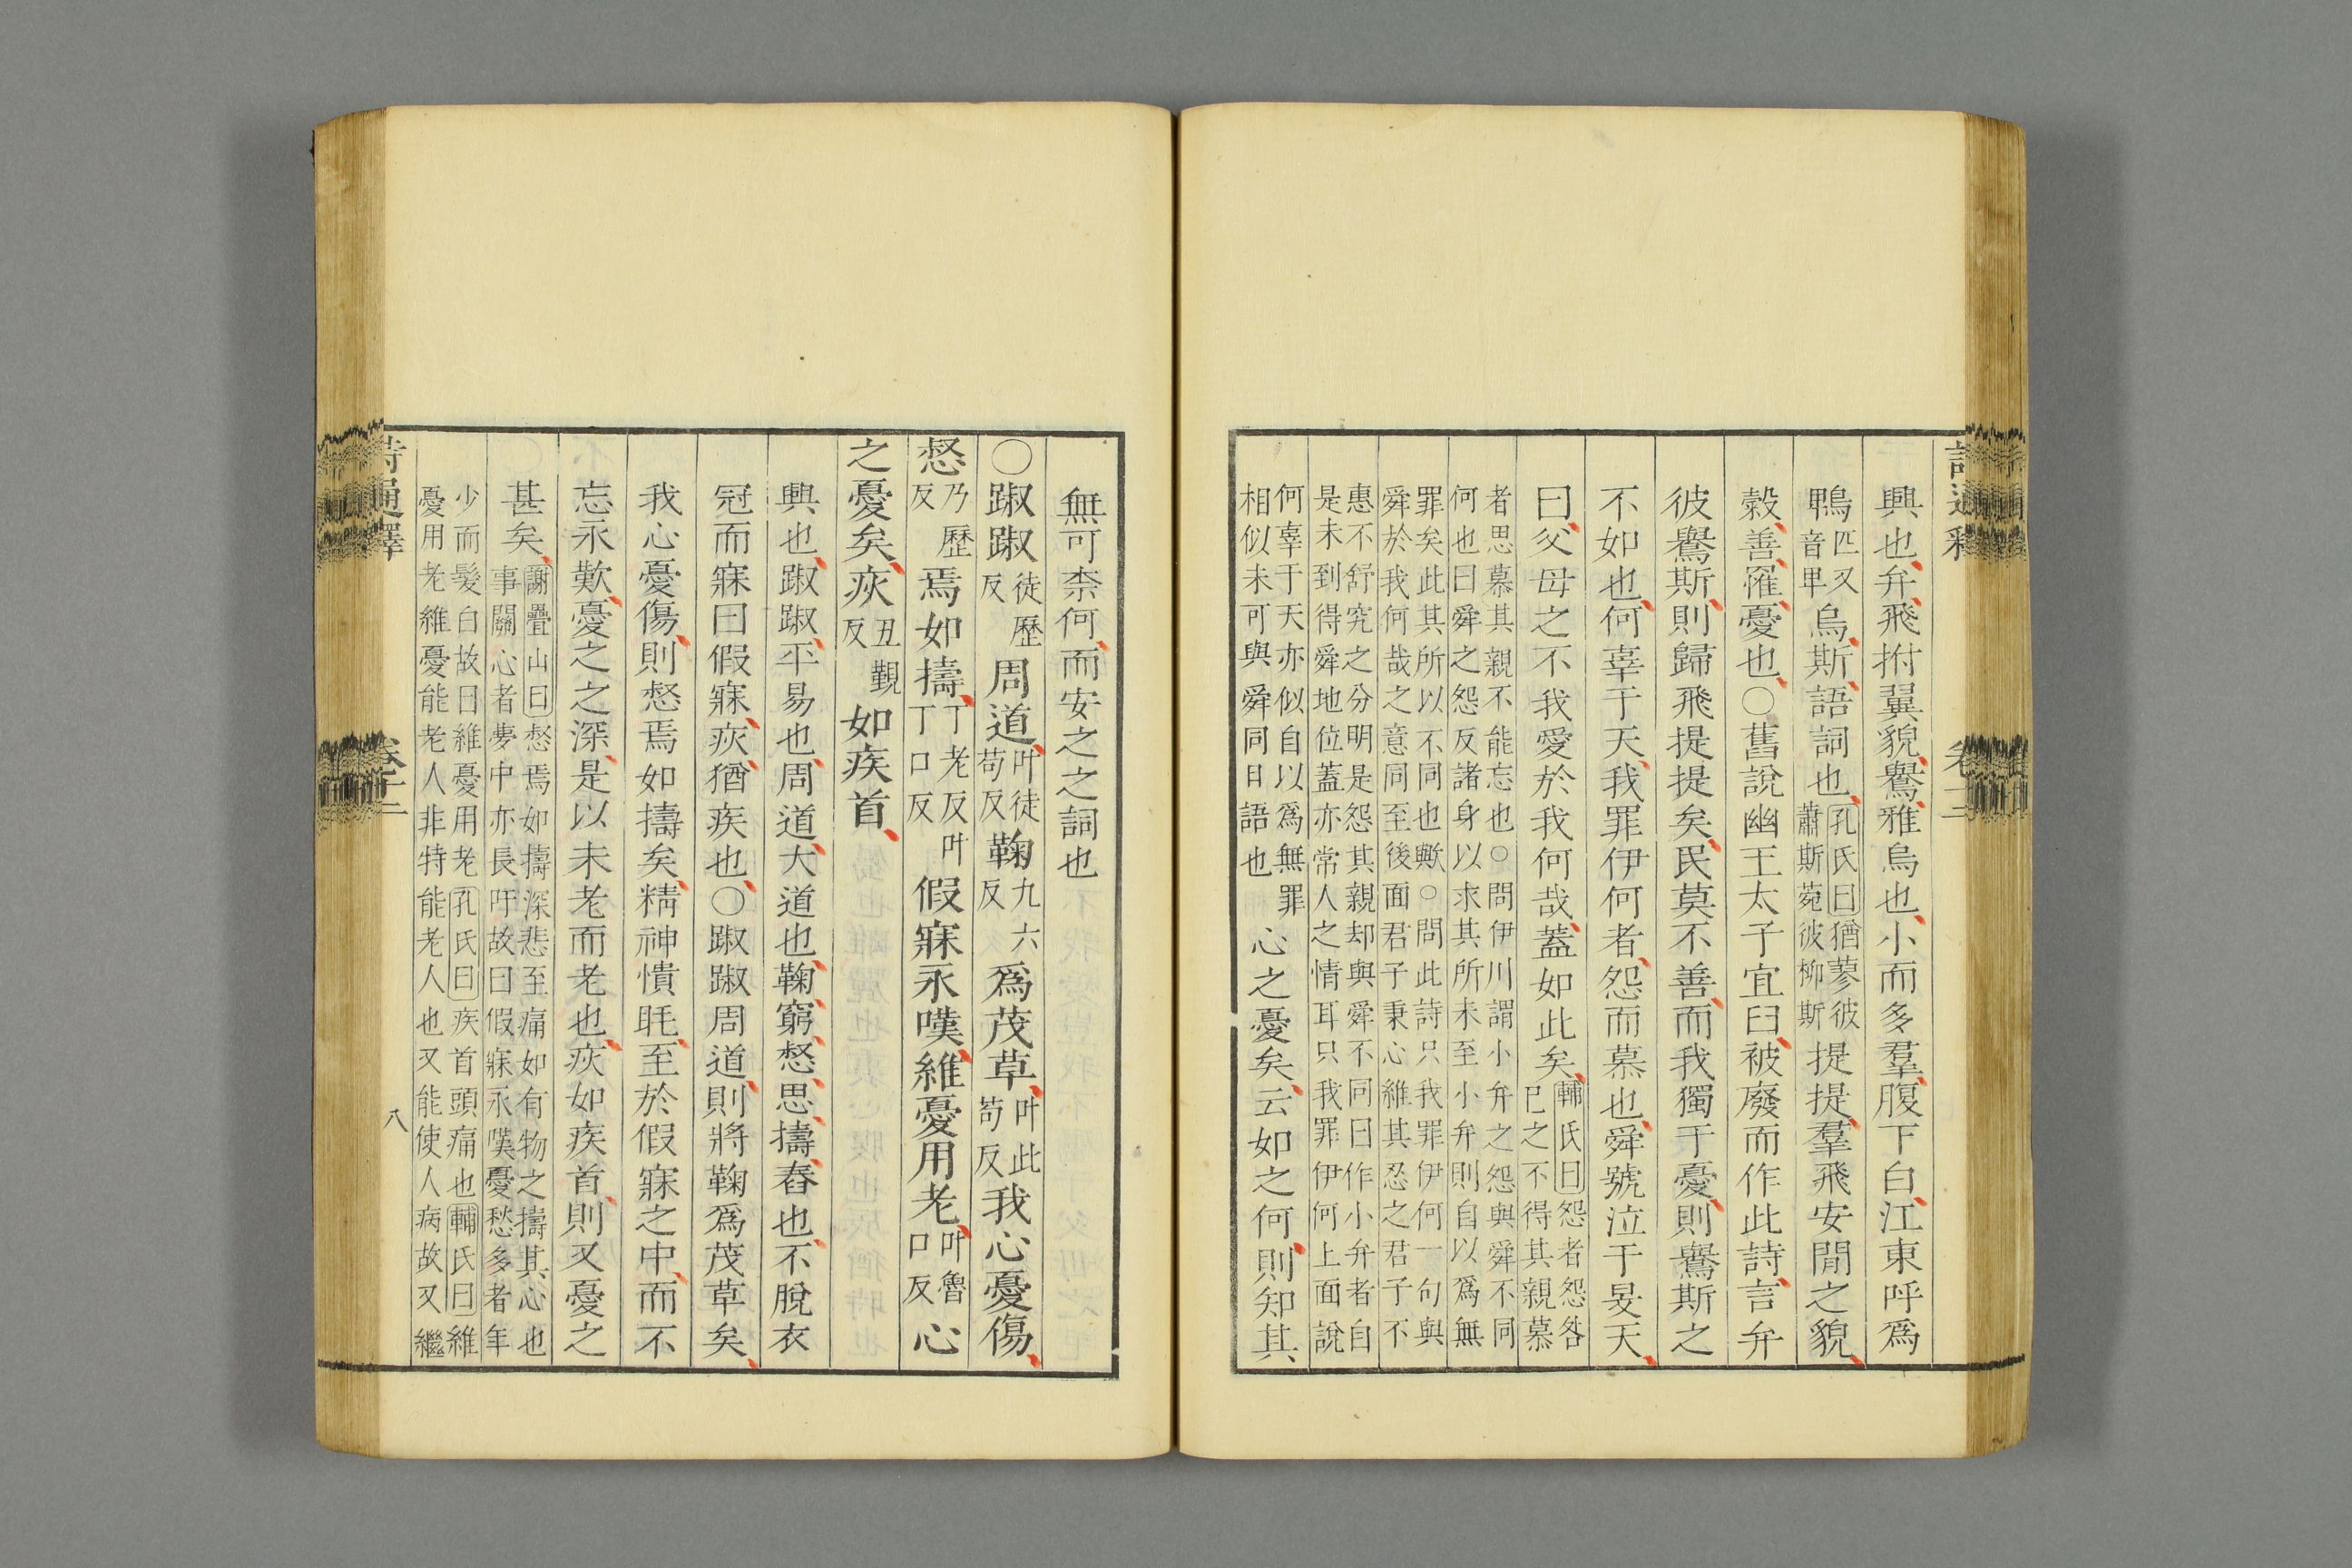 興也弁飛拊翼貌鸒雅烏也小而多羣腹下白江東呼為
鴨匹又音甲烏斯語詞也孔氏曰猶蓼彼蕭斯菀彼柳斯提提羣飛安閒之貌
穀善罹憂也○舊說幽王太子宜臼被廢而作此詩言弁
彼鸒斯則歸飛提提矣民莫不善而我獨于憂則鸒斯之
不如也何辜于天我罪伊何者怨而慕也舜號泣于旻天
曰父母之不我愛於我何哉蓋如此矣輔氏曰怨者怨咎已之不得其親慕
者思慕其親不能忘也○問伊川謂小弁之怨與舜不同
何也曰舜之怨反諸身以求其所未至小弁則自以爲無
罪矣此其所以不同也歟○問此詩只我罪伊何一句與
舜於我何哉之意同至後面君子秉心維其忍之君子不
惠不舒究之分明是怨其親却與舜不同曰作小弁者自
是未到得舜地位蓋亦常人之情耳只我罪伊何上面說
何辜于天亦似自以爲無罪
相似未可與舜同日語也心之憂矣云如之何則知其
詩通釋 卷十二
無可柰何而安之之詞也
○踧踧徒歷反周道叶徒苟反鞫九六反爲茂草叶此苟反我心憂傷
惄乃歷反焉如擣丁老反叶丁口反假寐永嘆維憂用老叶魯口反心
之憂矣疢丑覲反如疾首
興也踧踧平易也周道大道也鞫窮惄思擣舂也不脫衣
冠而寐曰假寐疢猶疾也○踧踧周道則將鞫爲茂草矣
我心憂傷則惄焉如擣矣精神憒眊至於假寐之中而不
忘永歎憂之之深是以未老而老也疢如疾首則又憂之
甚矣謝疊山曰惄焉如擣深悲至痛如有物之擣其心也
事關心者夢中亦長吁故曰假寐永嘆憂愁多者年
少而髮白故曰維憂用老孔氏曰疾首頭痛也輔氏曰維
憂用老維憂能老人非特能老人也又能使人病故又繼
詩通釋 卷十二 八